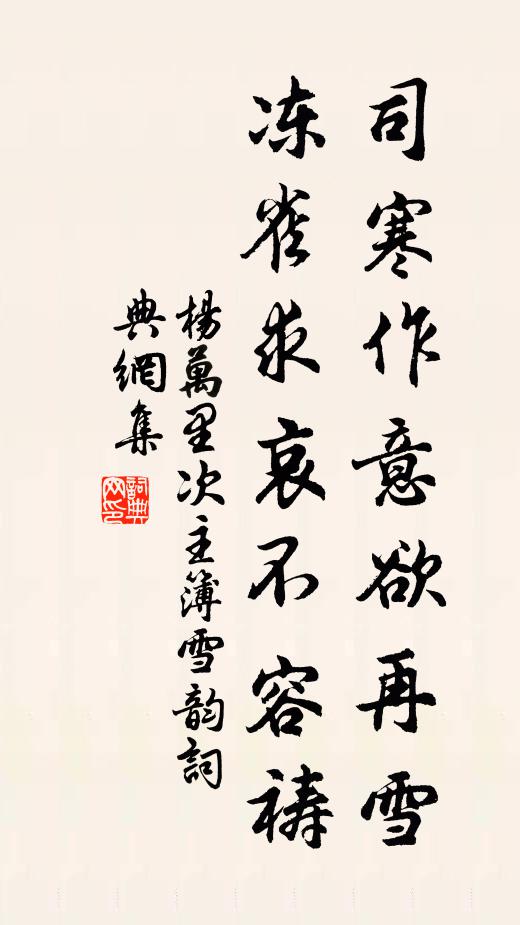 司寒作意欲再雪
冻雀求哀不容祷
楊萬里次主簿雪韵詞
典網集
詞典网印